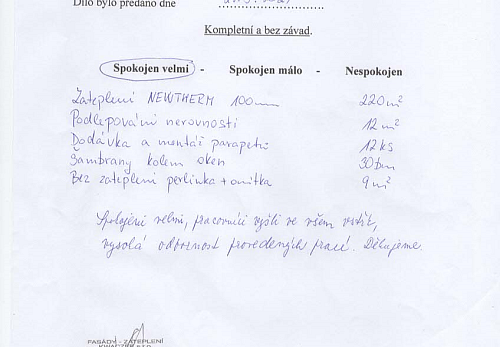 Dílo bylo předáno dne
Kompletní a bez závad.
Spokojen velmi - Spokojen málo - Nespokojen
Zateplení NEWTHERM 100mm 220m²
Podlepování nerovností 12m²
Dodávka a montáž parapetů 12ks
Šambrany kolem oken 30bm
Bez zateplení perlinka + omítka 9m²
Spokojeni velmi, pracovníci vyšli ve všem vstříc,
vysoká odbornost provedených prací. Děkujeme.
FASÁDY - ZATEPLENÍ